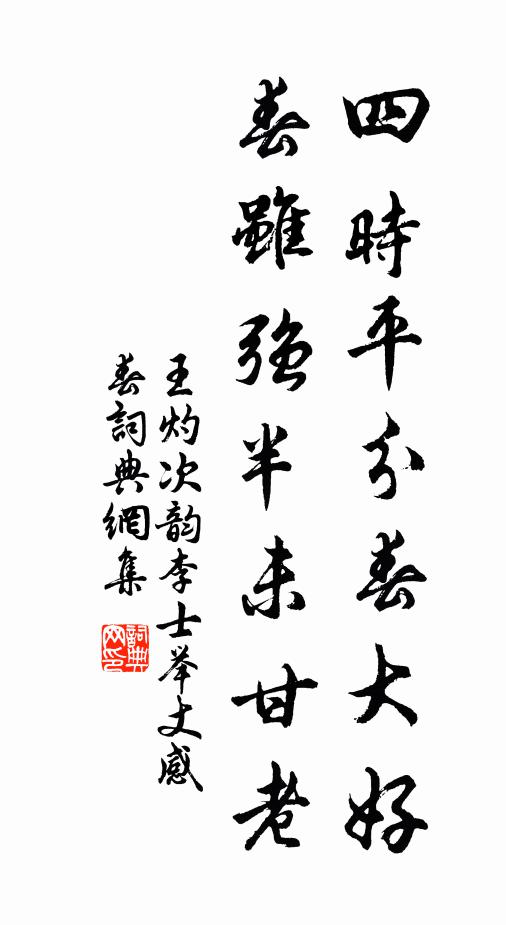 四時平分春大好
春雖強半未甘老
王灼次韵李士举丈感
春詞典網集
詞典
网印